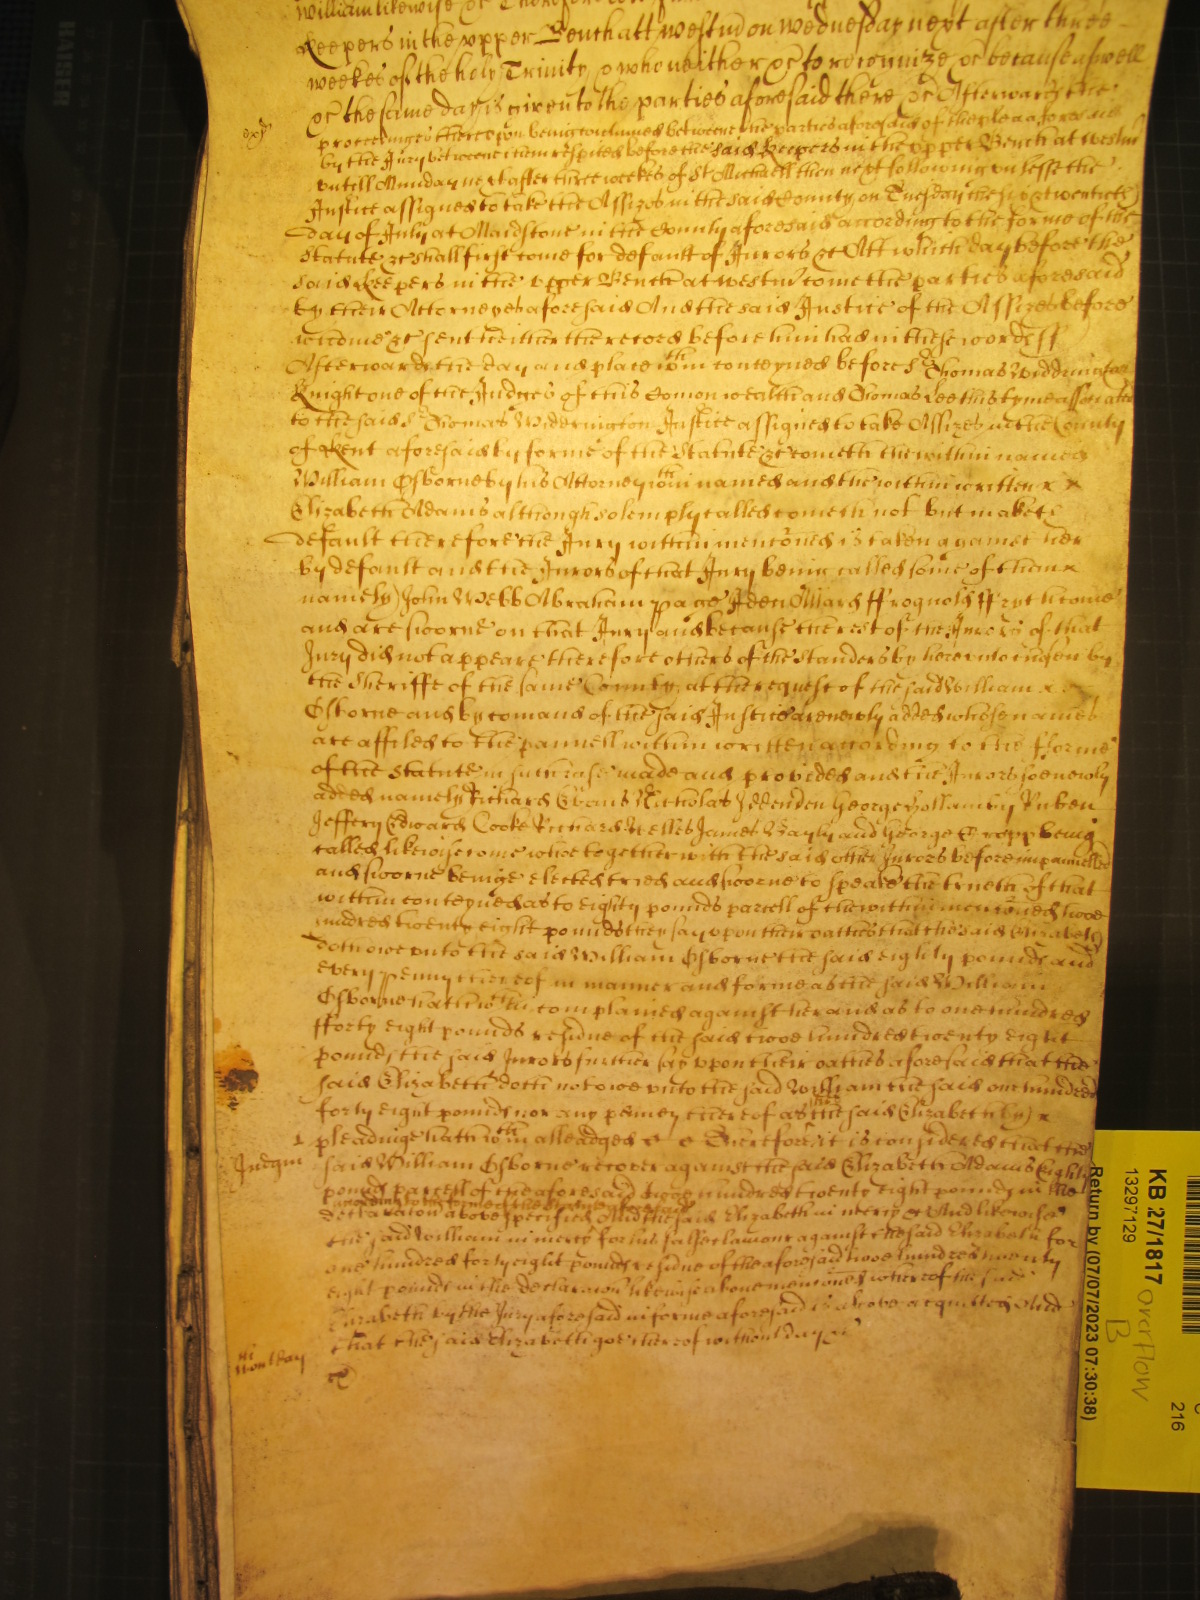 William likewise &c Therefore
Keepers in the upper Bench att Westm on Wednesday next after three
weekes of the holy Trinity & who neither &c to recognize &c because aswell
&c the same day is given to the parties aforesaid there &c Afterwards the
proceedings thereupon being continued betweene the parties aforesaid of the plea aforesaid
by the Jury betweene them respited before the said Keepers in the upper Bench at Westm
untill Munday next after three weekes of St Michaell then next following unlesse the
Justice assigned to take the Assizes in the said County on Tuesday the twentieth
day of July at Maidstone in the County aforesaid according to the forme of the
Statute &c shall first come for default of Jurors &c Att which day before the
said Keepers in the upper Bench at Westm come the parties aforesaid
by their Attorneyes aforesaid And the said Justice of the Assizes before
whome &c sent hether the record before him had in these words ss
Afterwards the day and place wthin conteyned before Sr Thomas Widdrington
Knight one of the Judges of this Comonwealth and Thomas Lee this tyme associated
to the said Sr Thomas Widdrington Justice assigned to take Assizes in the County
of Kent aforesaid by forme of the Statute &c cometh the within named
William Osborne by his Attorney wthin named and the within written x x
Elizabeth Adams although solemply called cometh not but makes
default therefore the Jury within mentoned is taken against her
by default and the Jurors of that Jury being called some of them x
namely John Webb Abraham Page
and are sworne on that Jury and because the rest of the Jurors of that
Jury did not appeare therefore others of the Standersby hereunto chosen by
the Sheriffe of the same County at the request of the said William x
Osborne and by comand of the said Justice are newly added whose names
are affiled to the pannell within written according to the fforme
of the Statute in such case made and provided and the Jurors soe newly
added namely Richard Evans Nicholas Iddenden George Hollamby Ruben
Jeffery Edward Cooke Richard Welles James Bayly and George being
called likewise come whoe together with the said other Jurors before impannelled
and sworne beinge elected tried and sworne to speake the trueth of that
within conteyned as to eighty pounds parcell of the within mentioned twoe
hundred twenty eight pounds they say upon their oathes that the said Elizabeth
doth owe unto the said William Osborne the said eighty pounds and
every penny thereof in manner and forme as the said William
Osborne hath wthin complained against her and as to one hundred
fforty eight pounds residue of the said twoe hundred twenty eight
pounds the said Jurors further say upon their oathes aforesaid that the
said Elizabeth doth not owe unto the said William the said one hundred
forty eight pounds nor any penney thereof as the said Elizabeth by x
pleadinge hath wthin alleadged & & Therefore it is considered that the
Judgm said William Osborne recover against the said Elizabeth Adams Eighty
pounds parcell of the aforesaid twoe hundred twenty eight pounds in the
declaration above specified And the said Elizabeth in mercy & And likewise
the said William in mercy for his false clamour against the said Elizabeth for
one hundred forty eight pounds residue of the aforesaid twoe hundred twenty
eight pounds in the declaration likewise above mentioned whereof the said
Elizabeth by the Jury aforesaid in forme aforesaid is above acquitted And
that the said Elizabeth goe thereof without day &c
KB 27/1817 overflow
B
13297129
Return by (07/07/2023 07:30:38)
216